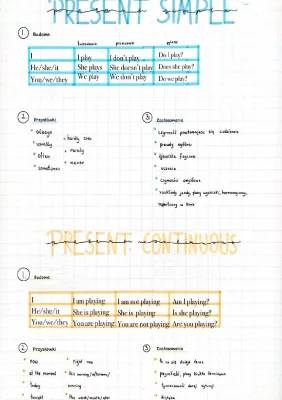 PRESENT SIMPLE
1. Budowa
twierdzenia przeczenia pytania
I I play I don't play Do I play?
He/she/it She plays She doesn't play Does she play?
You/we/they We play We don't play Do we play?
2. Przysłówki
always
usually
often
sometimes
hardly ever
rarely
never
3. Zastosowanie
czynność powtarzająca się codziennie
prawdy ogólne
zjawiska fizyczne
uczucia
rozkłady jazdy, plany wycieczki, harmonogramy,
PRESENT CONTINUOUS
1. Budowa
I I am playing I am not playing Am I playing?
He/she/it She is playing She is playing Is she playing?
You/we/they You are playing You are not playing Are you playing?
2. Przysłówki
now
at the moment
today
tonight
right now
this morning/afternoon/
evening
this week/month/year
3. Zastosowanie
to co się dzieje teraz